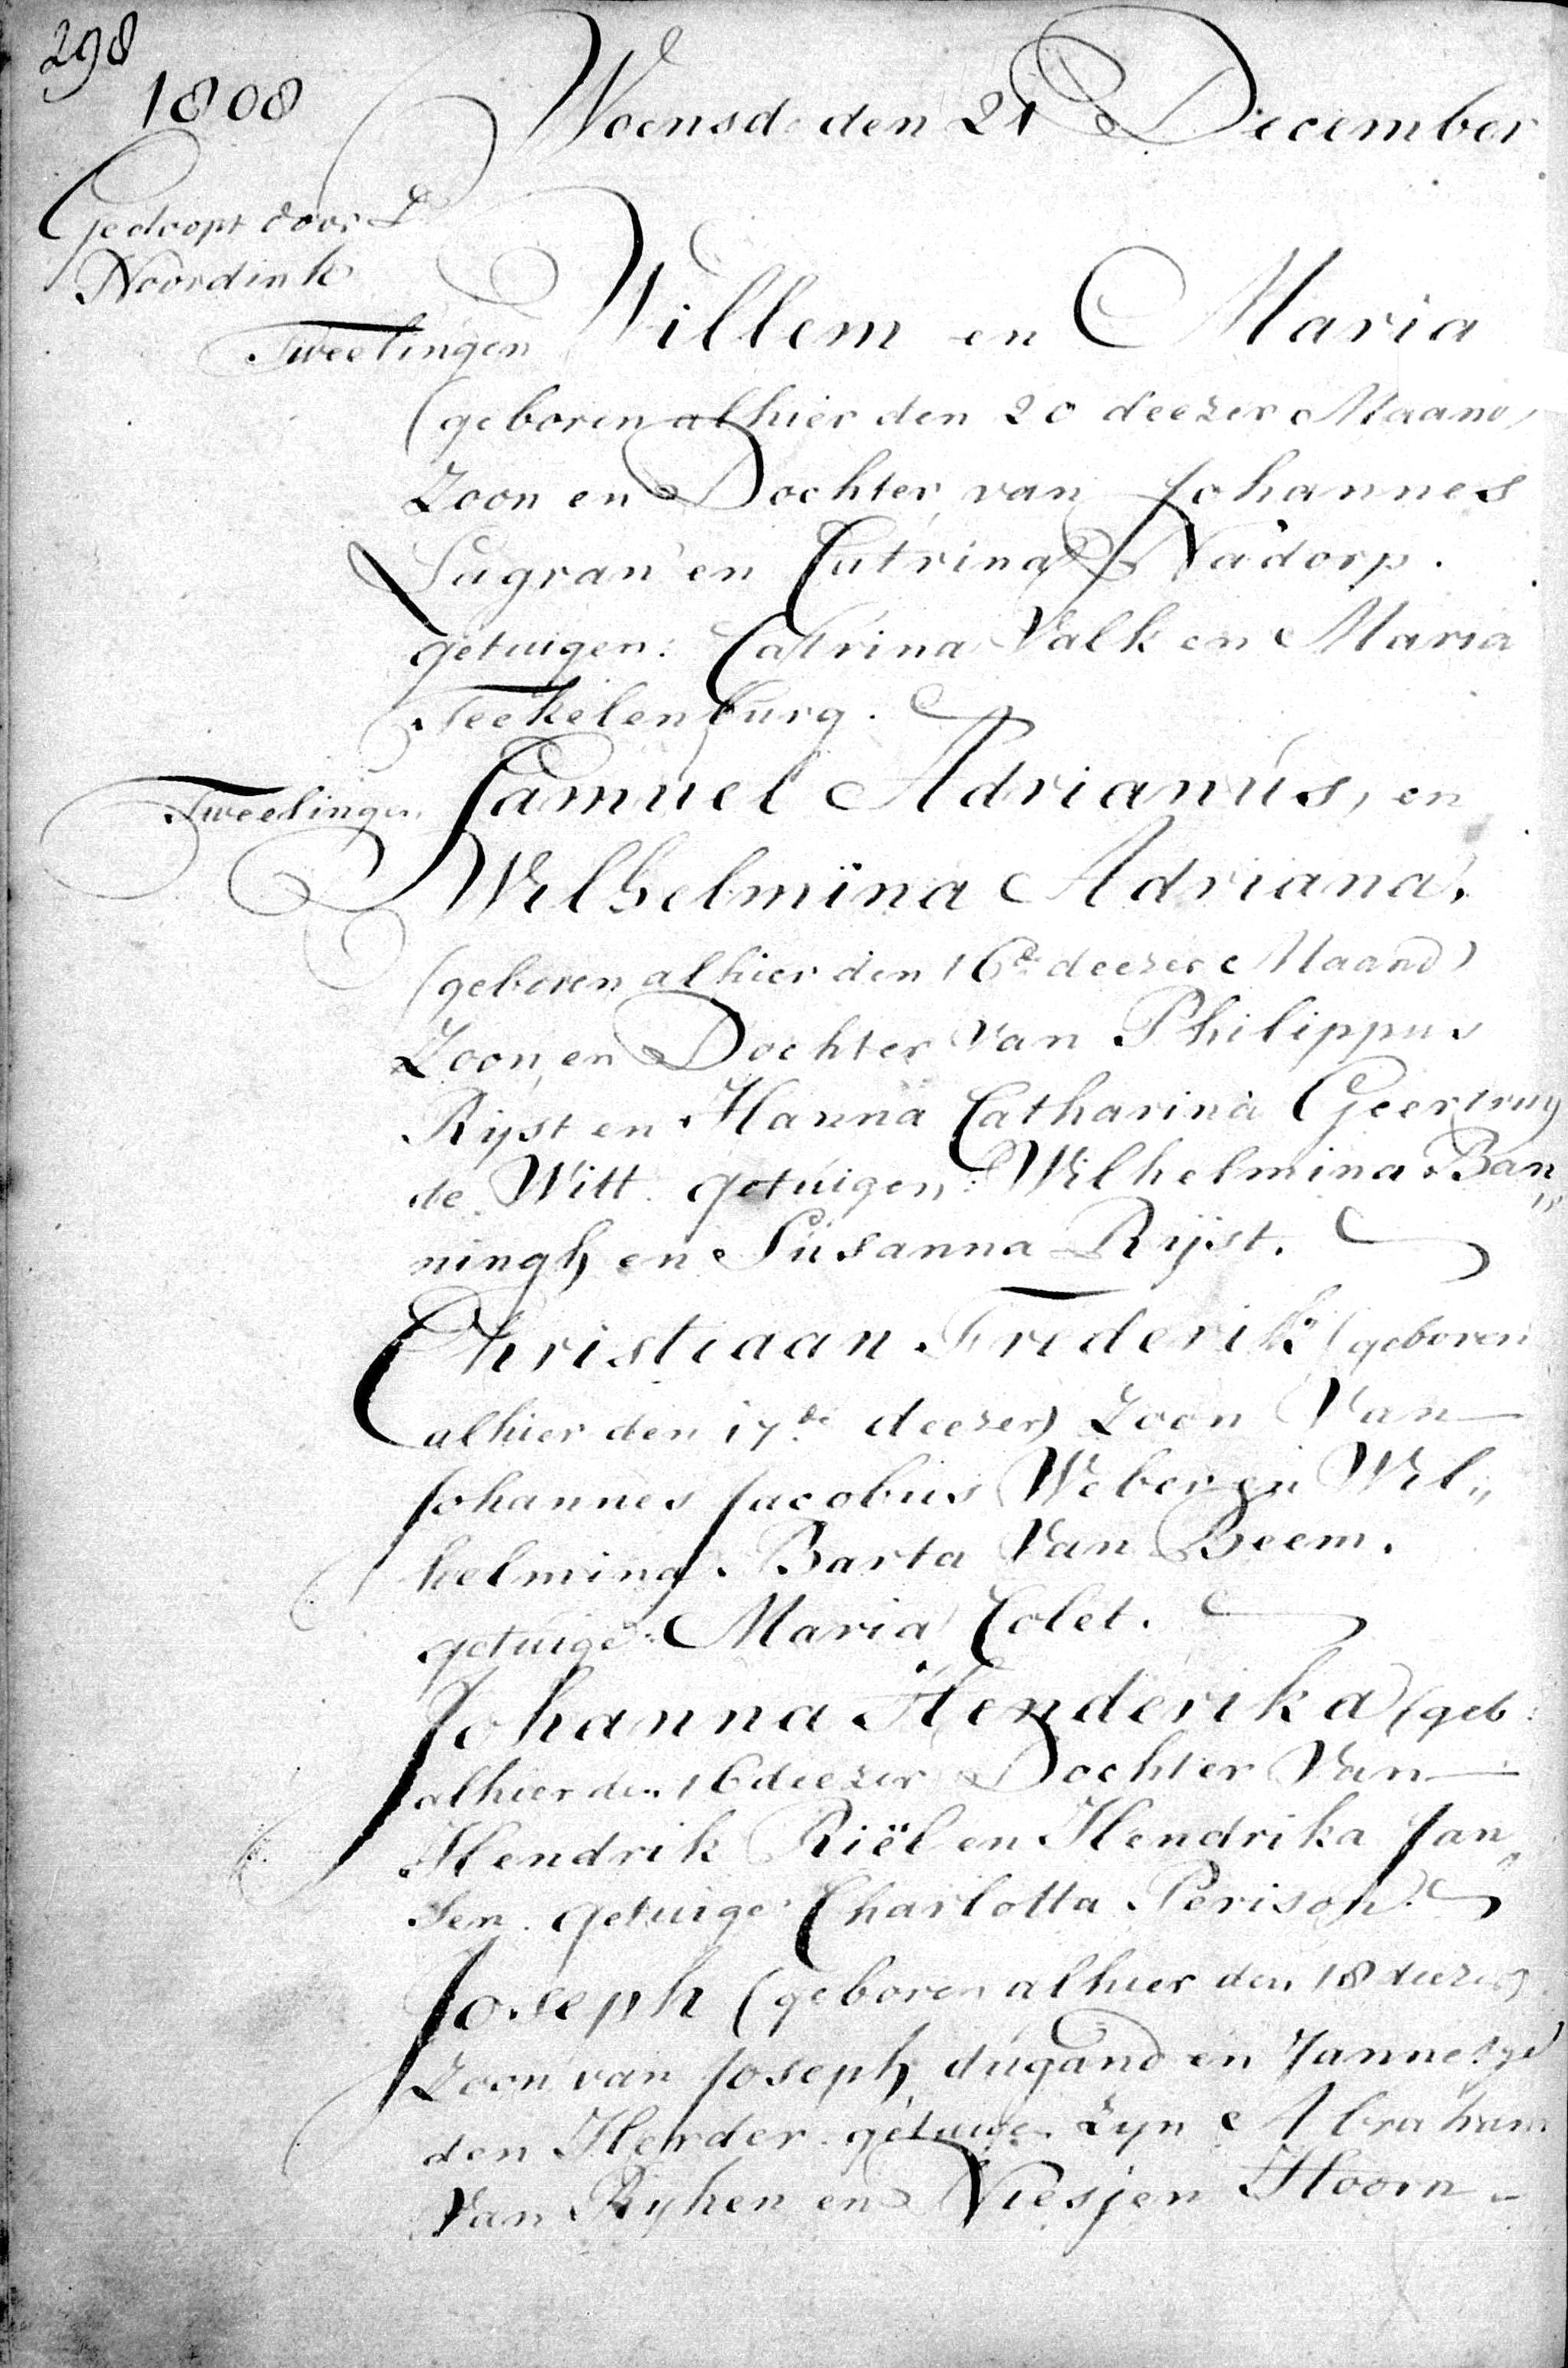 298
1808 Woensd: den 21 December
Gedoopt door Ds
Noordink
Tweelingen Willem en Maria
(geboren alhier den 20 deezer Maand)
Zoon en Dochter van Johannes
Lugran en Catrina Nadorp.
getuigen: Catrina Valk en Maria
Teekelenburg.
Tweelingen Samuel Adrianus, en
Wilhelmina Adriana,
(geboren alhier den 16de deezer Maand)
Zoon en Dochter van Philippus
Rijst en Hanna Catharina Geertruy
de Witt. getuigen: Wilhelmina Ban„
ningh en Susanna Rijst.
Christiaan Frederik (geboren
alhier den 17de deezer) Zoon Van
Johannes Jacobus Weber en Wil„
helmina Barta Van Beem.
getuige: Maria Colet.
Johanna Henderika (geb:
alhier den 16 deezer Dochter Van
Hendrik Riël en Hendrika Jan„
sen. getuige Charlotta Perison.
Joseph (geboren alhier den 18 deezer)
Zoon van Joseph dugand en Jannetye
den Herder. getuige Zyn Abraham
Van Ryken en Niesjen Hoorn